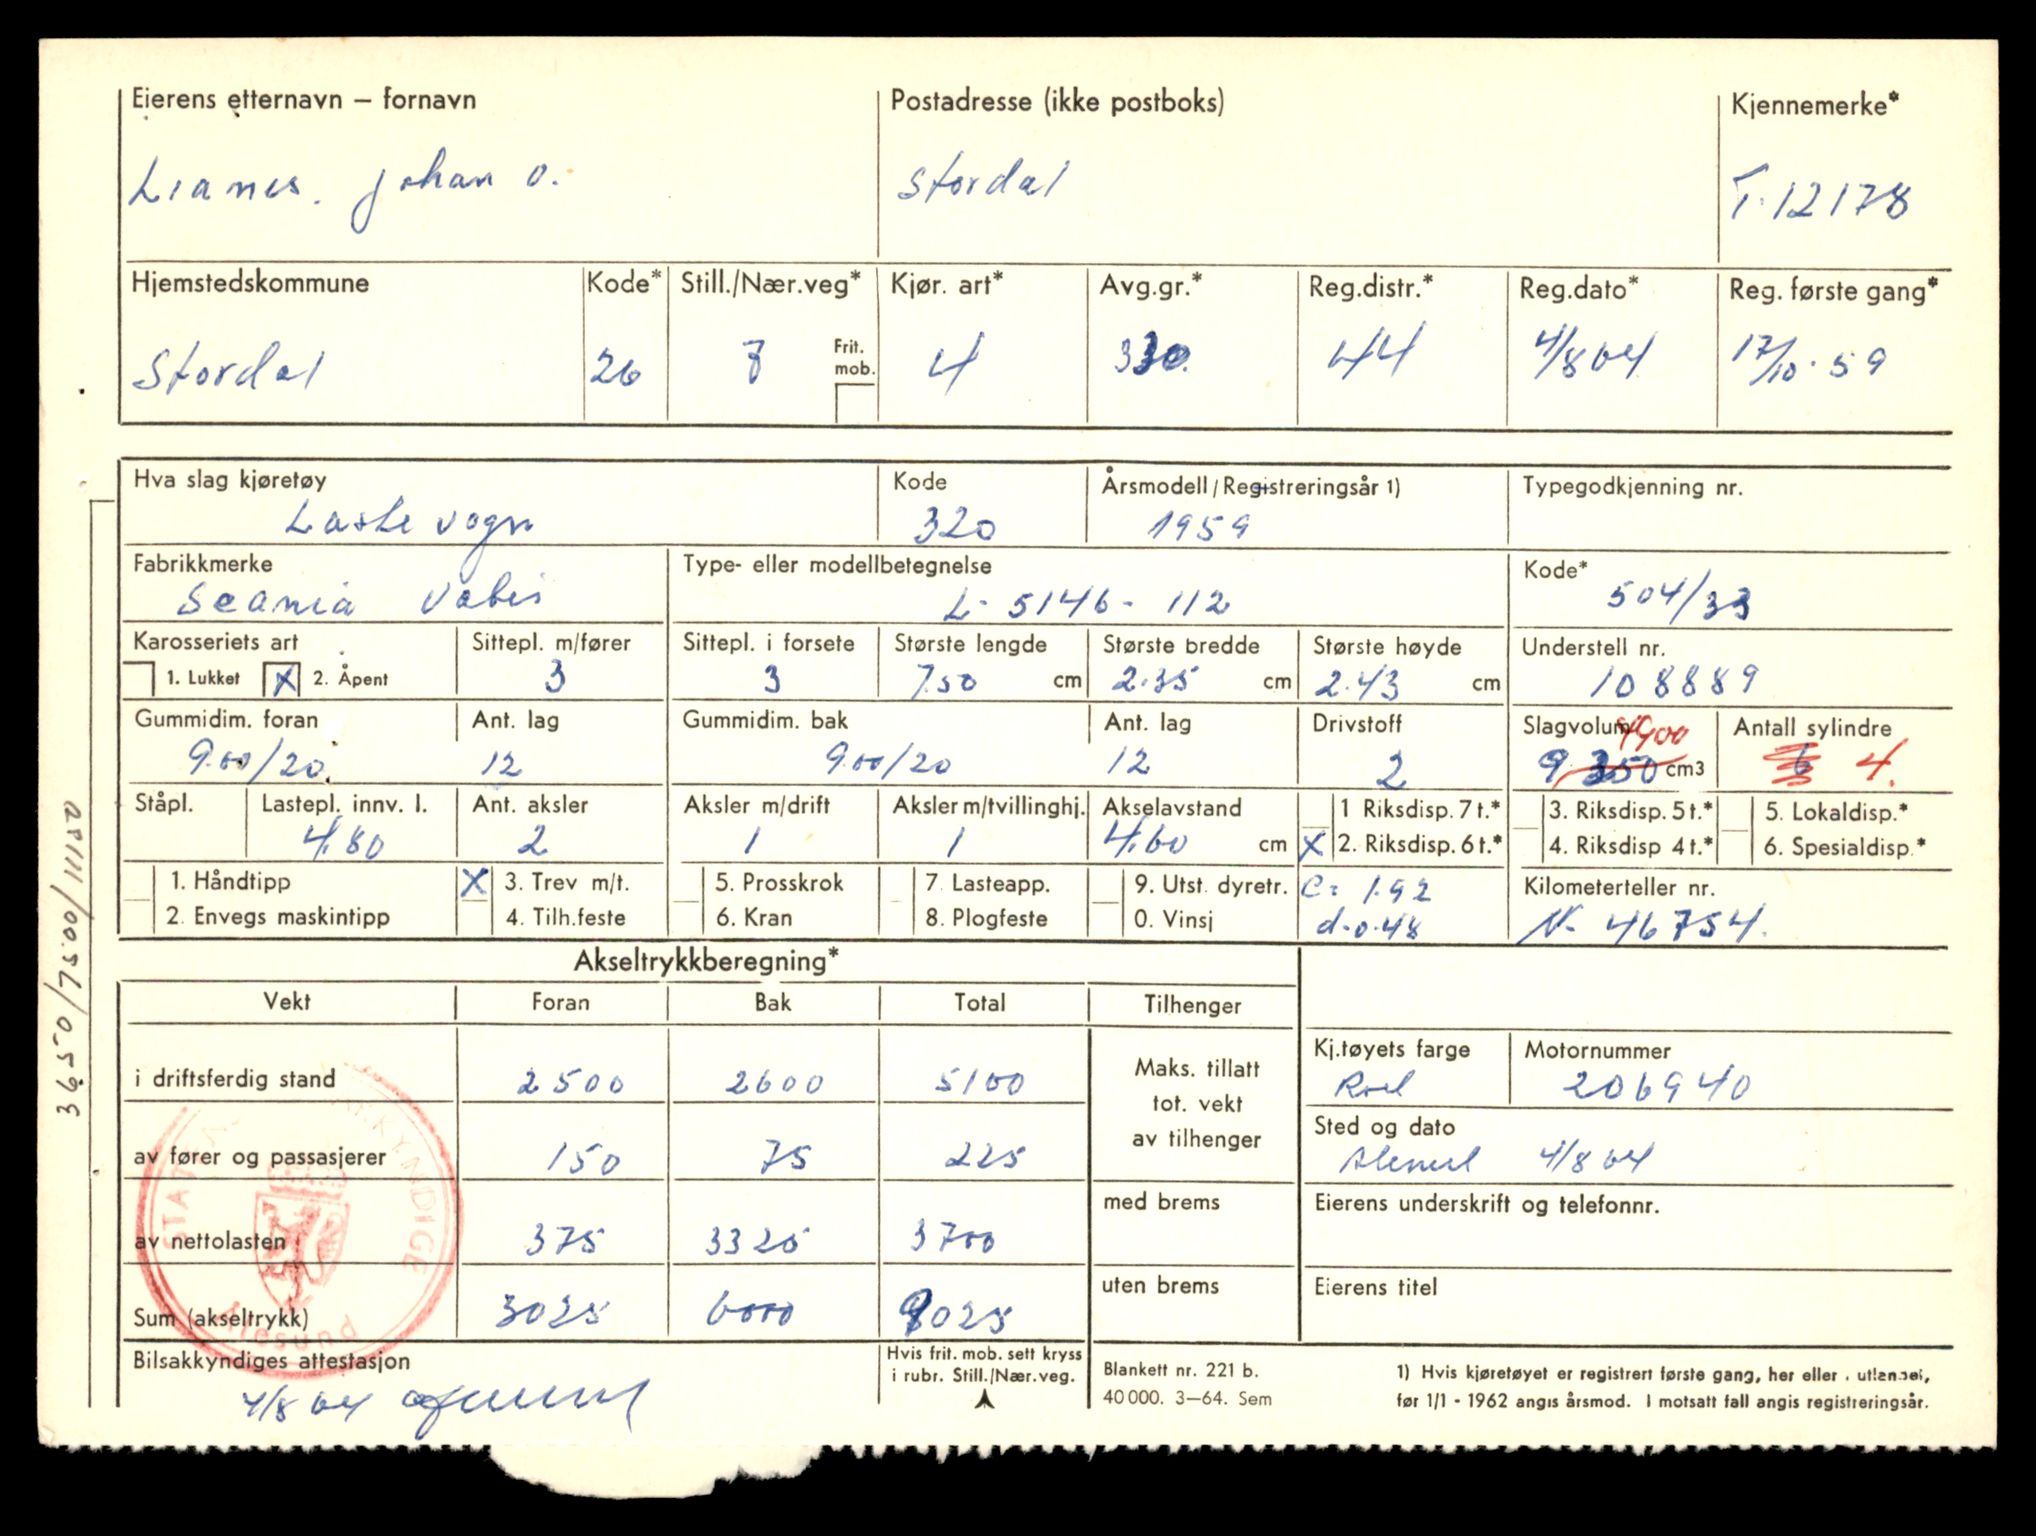 Eierens etternavn – fornavn Postadresse (ikke postboks) Kjennemerke*
Lianes. Johan O. Stordal T.12178
Hjemstedskommune Kode* Still./Nær.veg* Kjør. art* Avg.gr.* Reg.distr.* Reg.dato* Reg. første gang*
Stordal 26 7 Frit. mob. 4 330. 44 4/8 64 17/10.59
Hva slag kjøretøy Kode Årsmodell/Registreringsår 1) Typegodkjenning nr.
Lastevogn 320 1959
Fabrikkmerke Type- eller modellbetegnelse Kode*
Scania Vabis L- 5146- 112 504/33
Karosseriets art Sittepl. m/fører Sittepl. i forsete Største lengde Største bredde Største høyde Understell nr.
1. Lukket X 2. Åpent 3 3 7.50 cm 2.35 cm 2.43 cm 108889
Gummidim. foran Ant. lag Gummidim. bak Ant. lag Drivstoff Slagvolum Antall sylindre
9.00/20. 12 9.00/20 12 2 9350 cm3 6 4.
Ståpl. Lastepl. innv. l. Ant. aksler Aksler m/drift Aksler m/tvillinghj. Akselavstand 1 Riksdisp. 7 t.* 3. Riksdisp. 5 t.* 5. Lokaldisp.*
4.80 2 1 1 4.60 cm X 2. Riksdisp. 6 t.* 4. Riksdisp 4 t.* 6. Spesialdisp.*
1. Håndtipp X 3. Trev m/t. 5. Prosskrok 7. Lasteapp. 9. Utst. dyretr. C= 1.92 Kilometerteller nr.
2. Envegs maskintipp 4. Tilh.feste 6. Kran 8. Plogfeste 0. Vinsj d.0.48 N- 46754.
Akseltrykkberegning*
Vekt Foran Bak Total Tilhenger
Kj.tøyets farge Motornummer
i driftsferdig stand 2500 2600 5100 Maks. tillatt tot. vekt av tilhenger Rød 206940
Sted og dato
av fører og passasjerer 150 75 225 4/8 64
med brems Eierens underskrift og telefonnr.
av nettolasten 375 3325 3700
uten brems Eierens titel
Sum (akseltrykk) 3025 6000 9025
STATENS BILSAKKYNDIGE
Ålesund
Bilsakkyndiges attestasjon Hvis frit. mob. sett kryss i rubr. Still./Nær.veg. Blankett nr. 221 b.
4/8 64 40 000. 3–64. Sem
1) Hvis kjøretøyet er registrert første gang, her eller i utlandet,
før 1/1 - 1962 angis årsmod. I motsatt fall angis registreringsår.